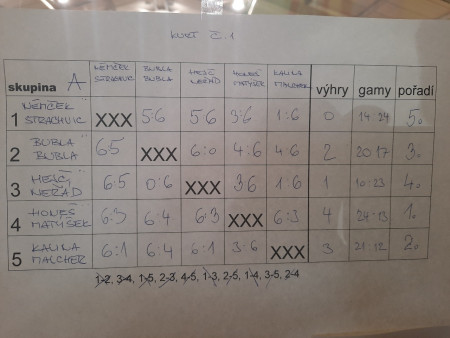 KURT Č. 1
skupina A NĚMČEK STRACHVIC BUBLA BUBLA HEJČ NEŘÁD HONEŠ MATYSEK KALINA MALCHER výhry gamy pořadí
1 NĚMČEK STRACHVIC XXX 5:6 5:6 3:6 1:6 0 14:24 5.
2 BUBLA BUBLA 6:5 XXX 6:0 4:6 4:6 2 20:17 3.
3 HEJČ NEŘÁD 6:5 0:6 XXX 3:6 1:6 1 10:23 4.
4 HONEŠ MATYSEK 6:3 6:4 6:3 XXX 6:3 4 24:13 1.
5 KALINA MALCHER 6:1 6:4 6:1 3:6 XXX 3 21:12 2.
1-2, 3-4, 1-5, 2-3, 4-5, 1-3, 2-5, 1-4, 3-5, 2-4